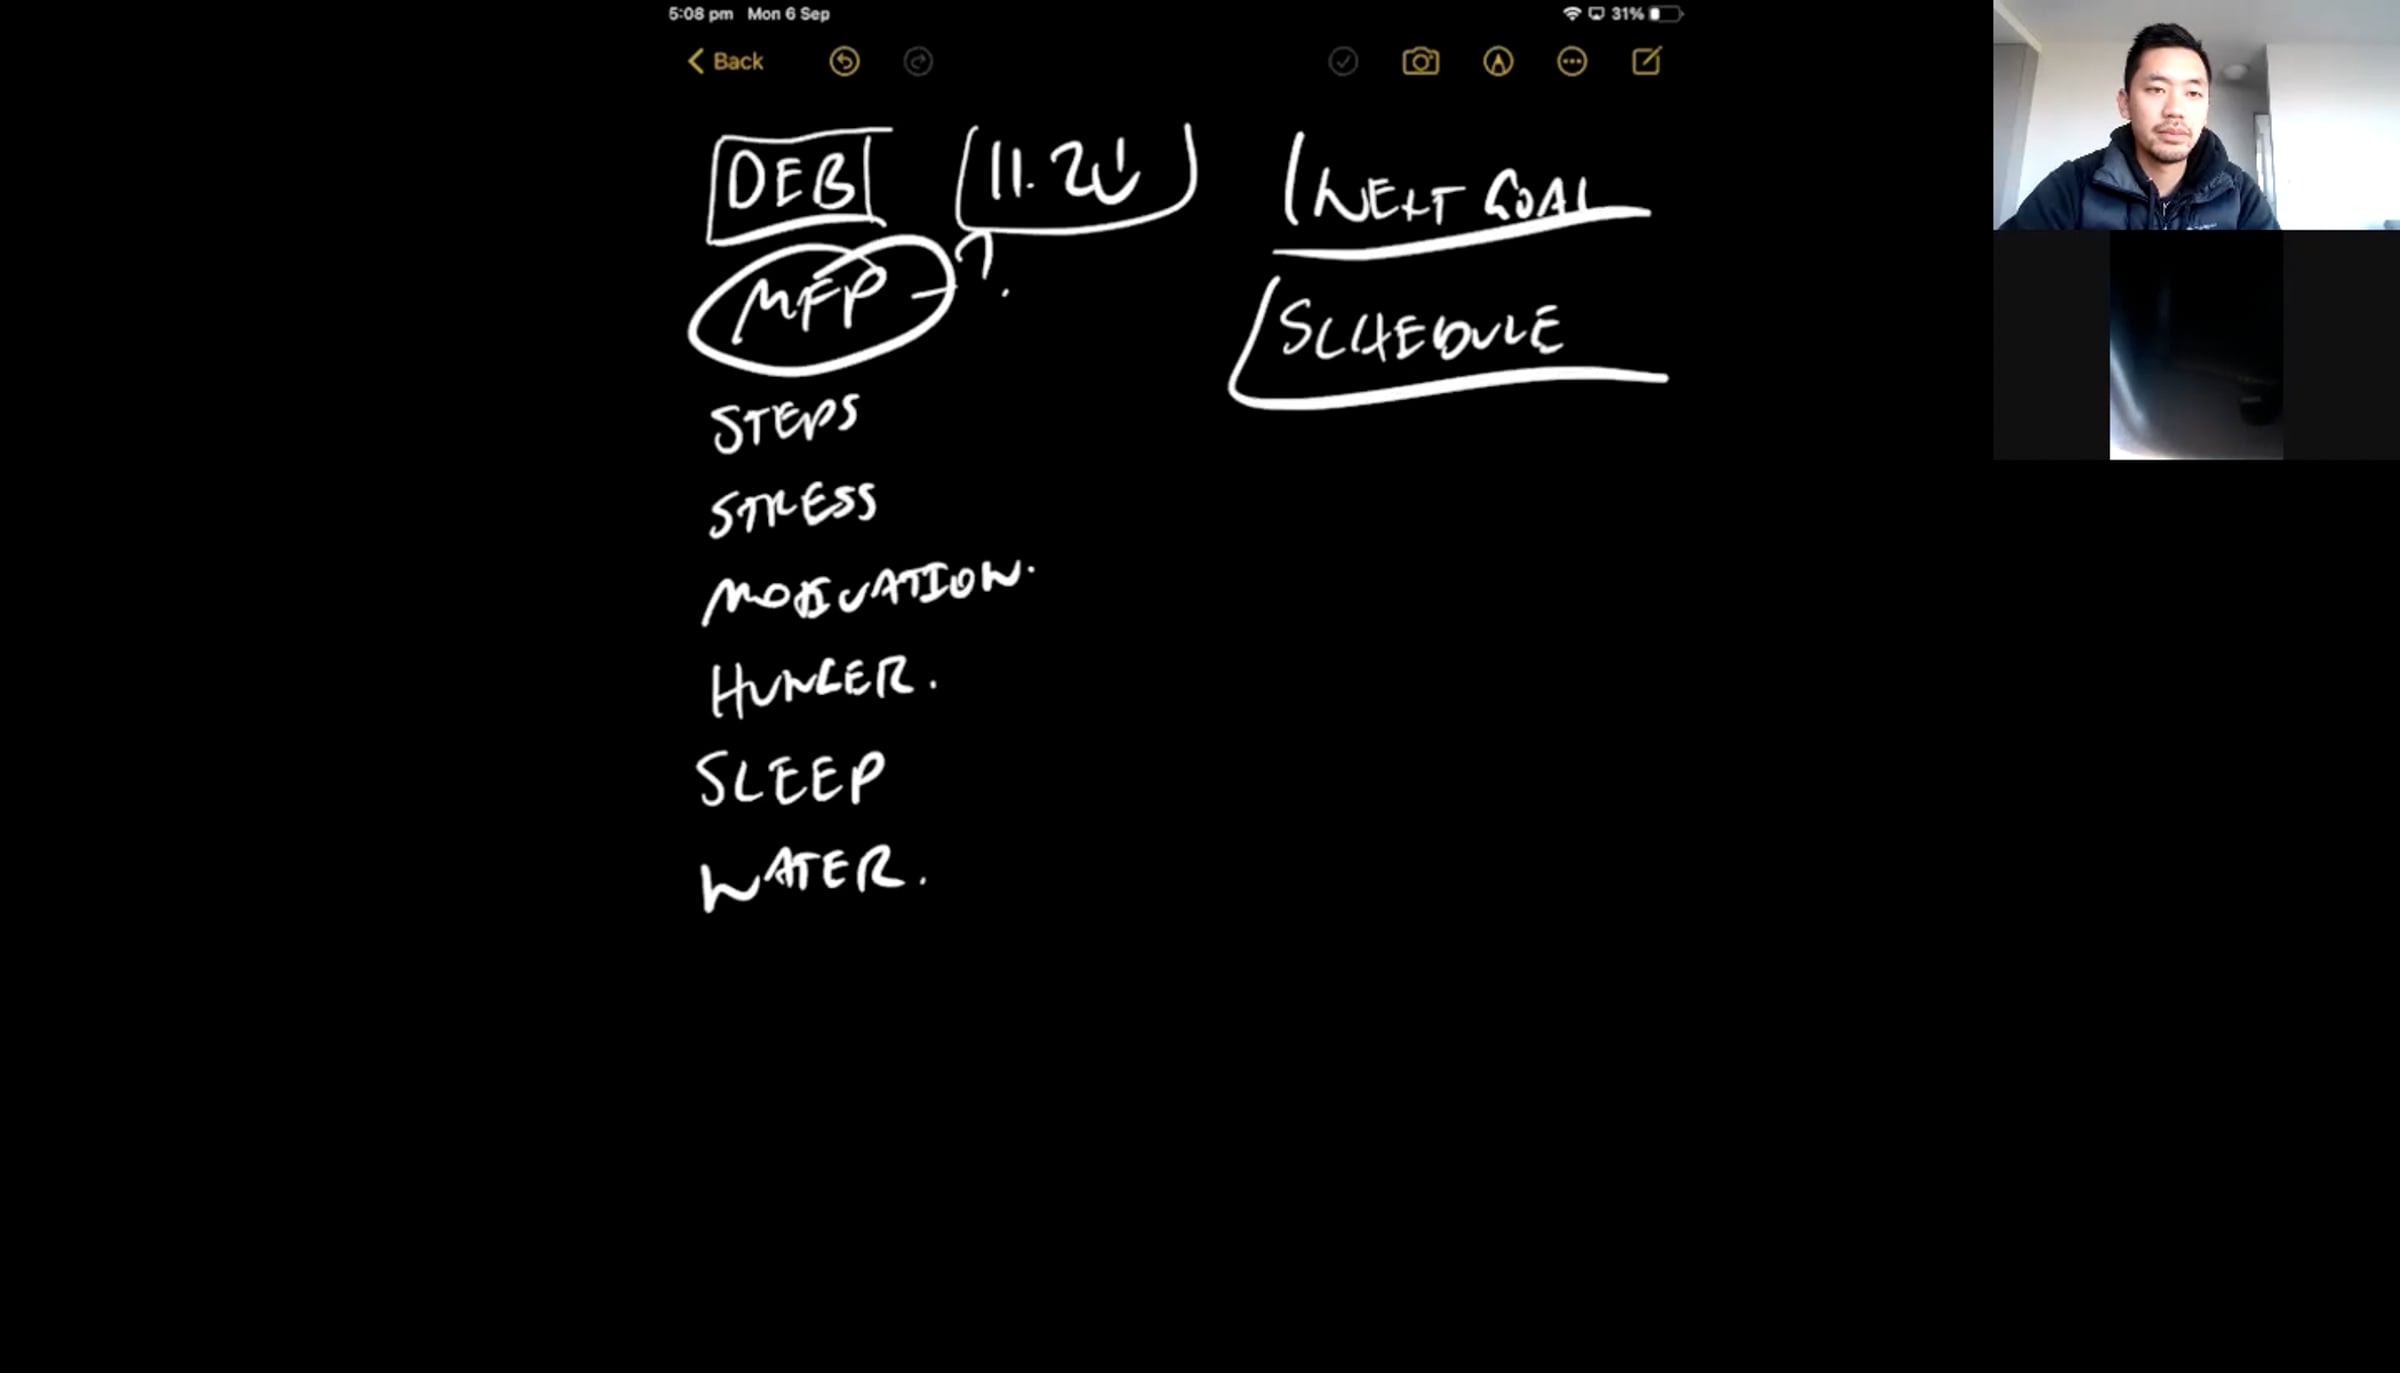 5:08 pm Mon 6 Sep 31%
Back
DEB 11.2
NEXT GOAL
MFP - ?
SCHEDULE
STEPS
STRESS
MOTIVATION.
HUNGER.
SLEEP
WATER.